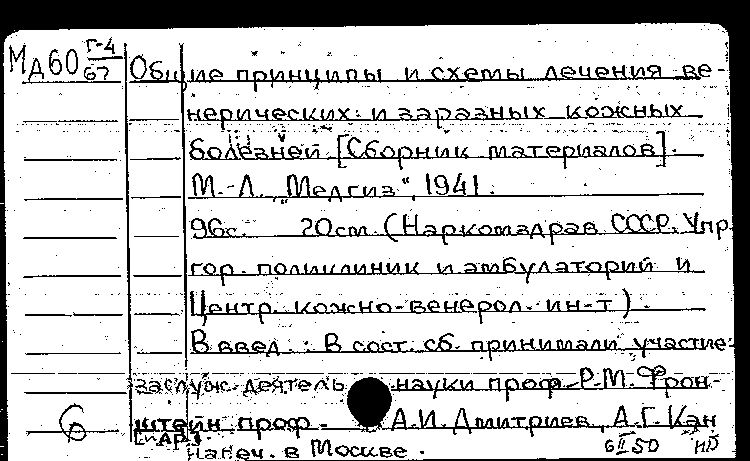 Мд60 Г-4/67
Общие принципы и схемы лечения ве-
нерических и заразных кожных
болезней. [Сборник материалов].
М.-Л. „Медгиз“, 1941.
96с. 20см. (Наркомздрав СССР. Упр.
гор. поликлиник и амбулаторий и
Центр. кожно-венерол. ин-т).
В введ.: В сост. сб. принимали участие:
заслуж. деятель науки проф. Р.М. Фрон-
штейн, проф. А.И. Дмитриев, А.Г. Кан
[и др.].
Напеч. в Москве.
6
6 II 50